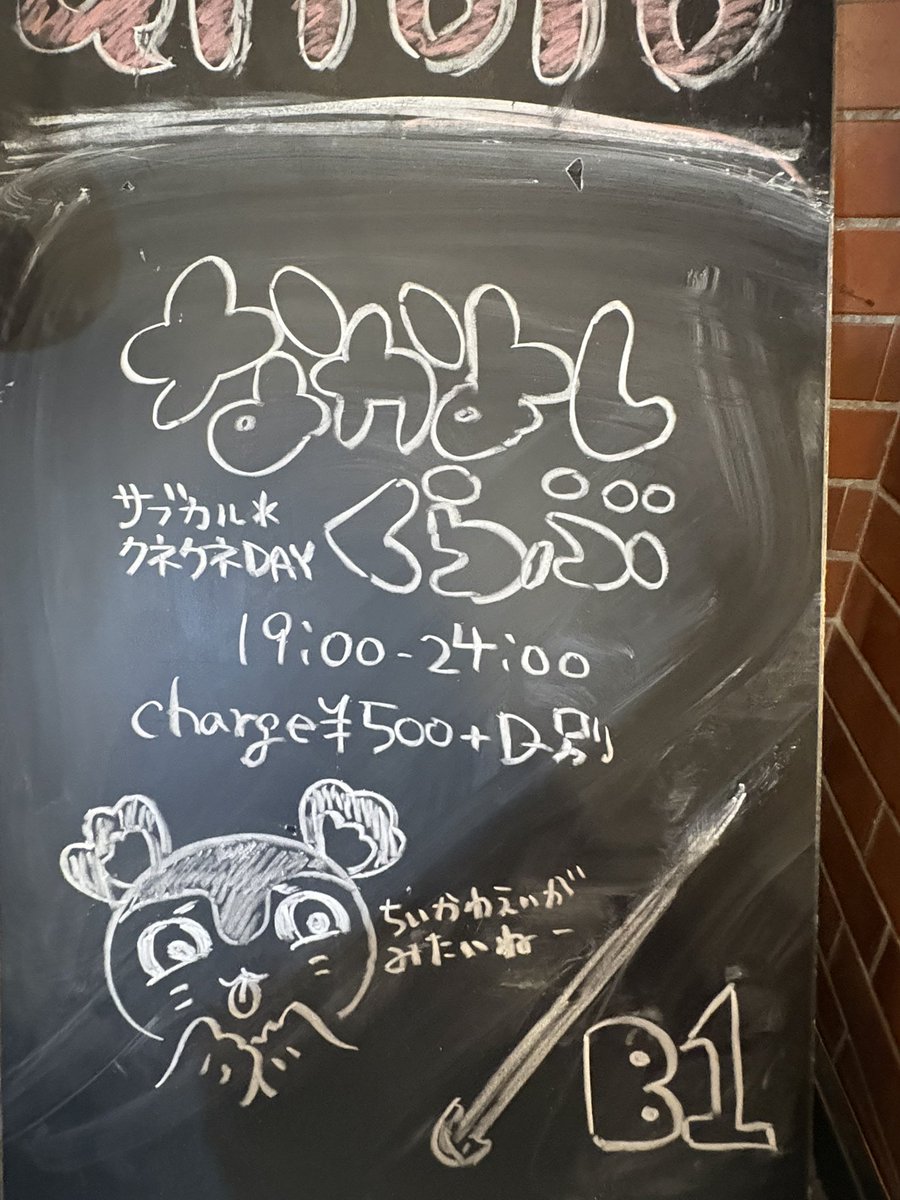 なかよし
くらぶ
サブカル*
クネクネDAY
19:00-24:00
charge¥500+D別
ちいかわえいが
みたいねー
B1